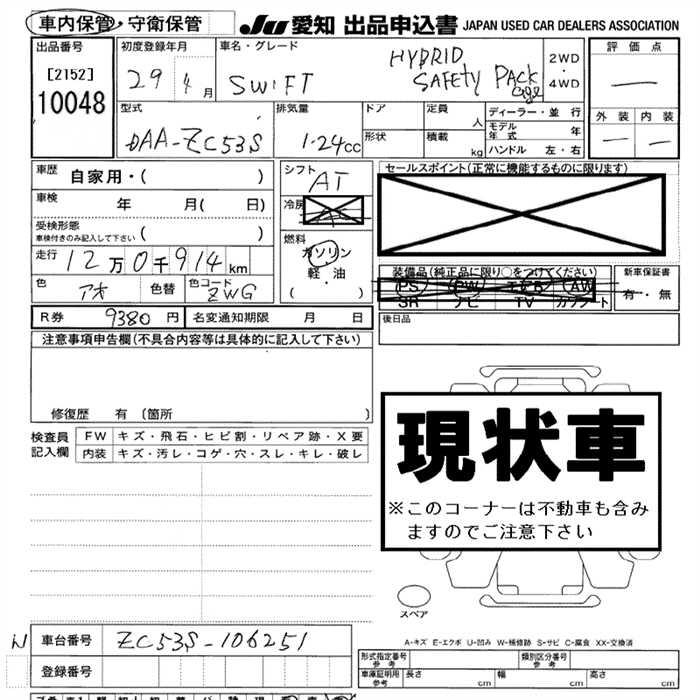 車内保管・守衛保管 JU 愛知 出品申込書 JAPAN USED CAR DEALERS ASSOCIATION
出品番号 [2152] 10048
初度登録年月 29 4月
車名・グレード SWIFT HYBRID SAFETY PACK
2WD・4WD
評価点 —
外装 — 内装 —
型式 DAA-ZC53S
排気量 1.24cc
ドア 形状
定員 人
積載 kg
ディーラー・並行
モデル年式 年
ハンドル 左・右
車歴 自家用・( )
車検 年 月( 日)
受検形態
車検付きのみ記入して下さい ( )
走行 12万0千914km
色 アオ 色替 色コード ZWG
シフト AT
冷房
燃料 ガソリン
軽・油
( )
セールスポイント(正常に機能するものに限ります)
装備品(純正品に限り○をつけてください)
PS PW エアB AW
SR ナビ TV カワシート
新車保証書
有・無
R券 9380円 名変通知期限 月 日
後日品
注意事項申告欄(不具合内容等は具体的に記入して下さい)
修復歴 有 〔箇所 〕
検査員記入欄
FW キズ・飛石・ヒビ割・リペア跡・X要
内装 キズ・汚レ・コゲ・穴・スレ・キレ・破レ
現状車
※このコーナーは不動車も含み
ますのでご注意下さい
スペア
A-キズ E-エクボ U-凹み W-補修跡 S-サビ C-腐食 XX-交換済
車台番号 ZC53S-106251
登録番号
形式指定番号 参考 類別区分番号 参考
車庫証明用 参考 長さ cm 幅 cm 高さ cm